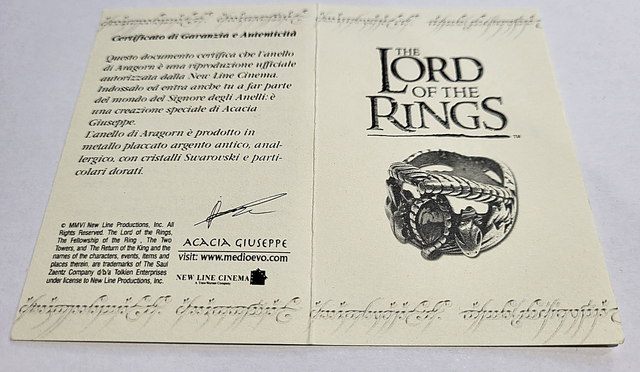 Certificato di Garanzia e Autenticità
Questo documento certifica che l'anello
di Aragorn è una riproduzione ufficiale
autorizzata dalla New Line Cinema.
Indossalo ed entra anche tu a far parte
del mondo del Signore degli Anelli: è
una creazione speciale di Acacia
Giuseppe.
L'anello di Aragorn è prodotto in
metallo placcato argento antico, anal-
lergico, con cristalli Swarovski e parti-
colari dorati.
© MMVI New Line Productions, Inc. All
Rights Reserved. The Lord of the Rings,
The Fellowship of the Ring , The Two
Towers, and The Return of the King and the
names of the characters, events, items and
places therein, are trademarks of The Saul
Zaentz Company d/b/a Tolkien Enterprises
under license to New Line Productions, Inc.
ACACIA GIUSEPPE
visit: www.medioevo.com
NEW LINE CINEMA
A Time Warner Company
THE
LORD
OF THE
RINGS
™